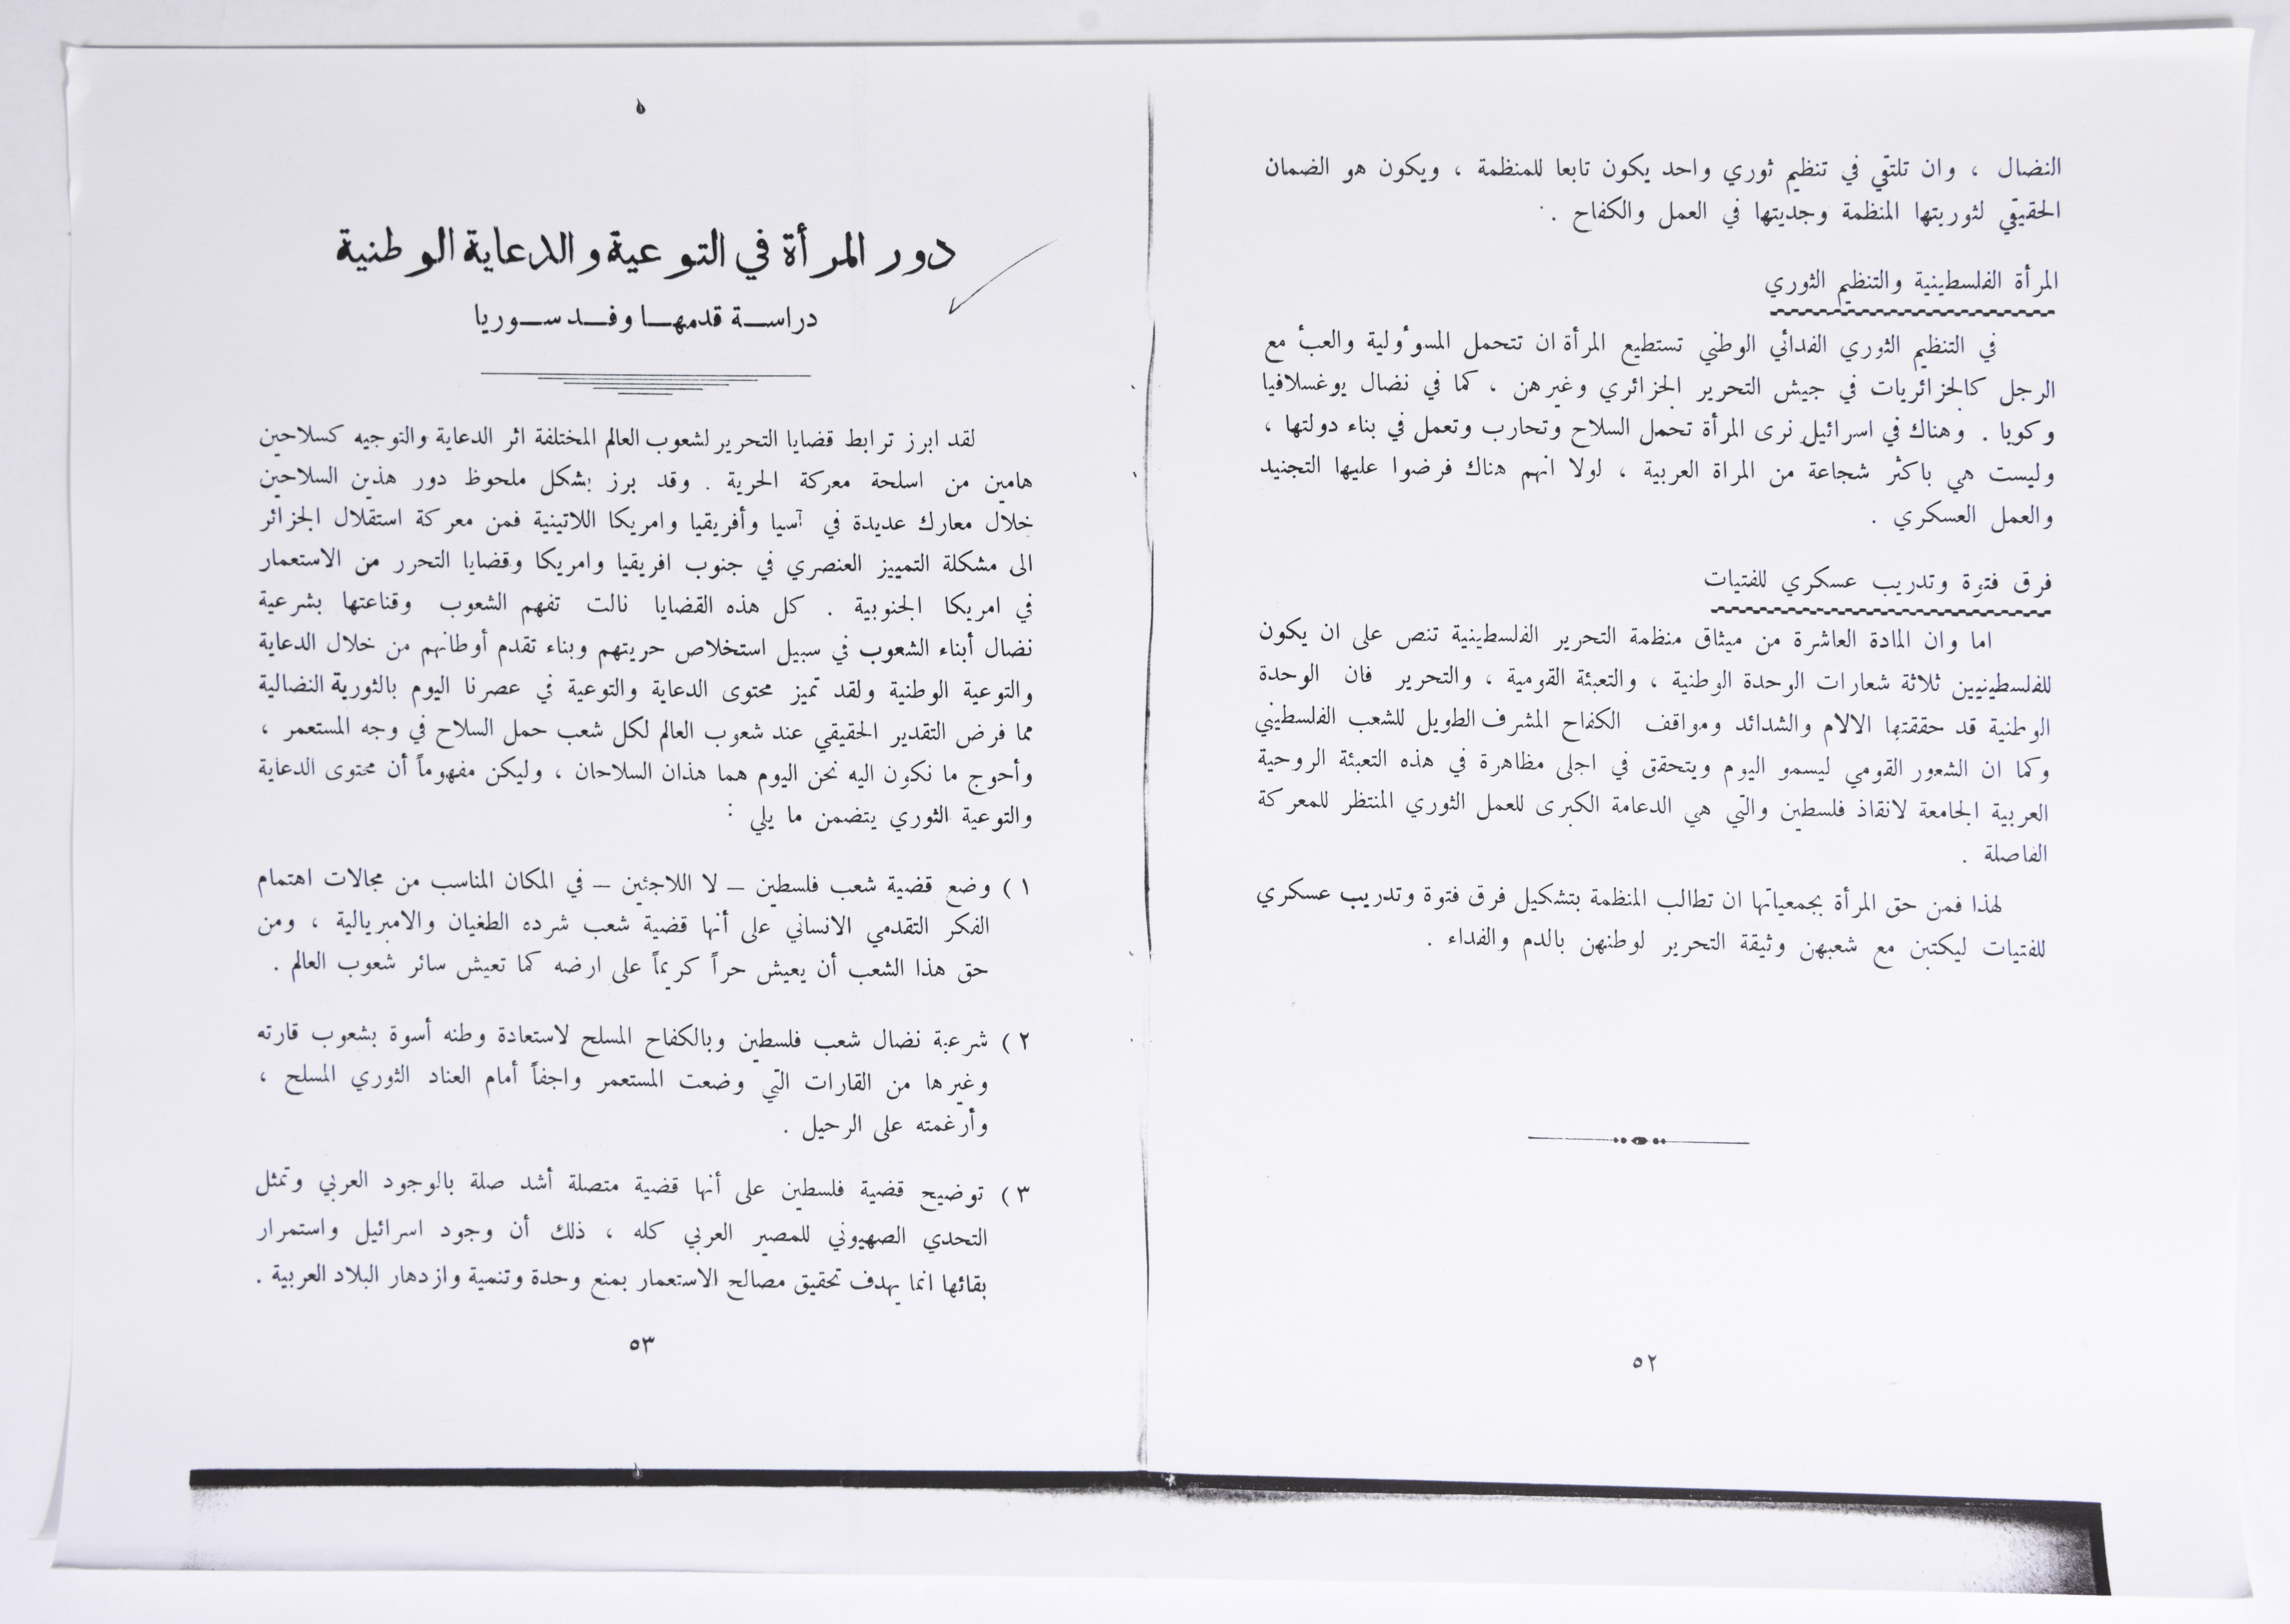 النضال ، وان تلتقي في تنظيم ثوري واحد يكون تابعا للمنظمة ، ويكون هو الضمان
الحقيقي لثوريتها المنظمة وجديتها في العمل والكفاح .
المرأة الفلسطينية والتنظيم الثوري
في التنظيم الثوري الفدائي الوطني تستطيع المرأة ان تتحمل المسوؤلية والعبأ مع
الرجل كالجزائريات في جيش التحرير الجزائري وغيرهن ، كما في نضال يوغسلافيا
وكوبا . وهناك في اسرائيل نرى المرأة تحمل السلاح وتحارب وتعمل في بناء دولتها ،
وليست هي باكثر شجاعة من المراة العربية ، لولا انهم هناك فرضوا عليها التجنيد
والعمل العسكري .
فرق فتوة وتدريب عسكري للفتيات
اما وان المادة العاشرة من ميثاق منظمة التحرير الفلسطينية تنص على ان يكون
للفلسطينيين ثلاثة شعارات الوحدة الوطنية ، والتعبئة القومية ، والتحرير فان الوحدة
الوطنية قد حققتها الالام والشدائد ومواقف الكفاح المشرف الطويل للشعب الفلسطيني
وكما ان الشعور القومي ليسمو اليوم ويتحقق في اجلى مظاهرة في هذه التعبئة الروحية
العربية الجامعة لانقاذ فلسطين والتي هي الدعامة الكبرى للعمل الثوري المنتظر للمعركة
الفاصلة .
لهذا فمن حق المرأة بجمعياتها ان تطالب المنظمة بتشكيل فرق فتوة وتدريب عسكري
للفتيات ليكتبن مع شعبهن وثيقة التحرير لوطنهن بالدم والفداء .
٥٢
دور المرأة في التوعية والدعاية الوطنية
دراســة قدمهــا وفــد ســوريا
لقد ابرز ترابط قضايا التحرير لشعوب العالم المختلفة اثر الدعاية والتوجيه كسلاحين
هامين من اسلحة معركة الحرية . وقد برز بشكل ملحوظ دور هذين السلاحين
خلال معارك عديدة في آسيا وأفريقيا وامريكا اللاتينية فمن معركة استقلال الجزائر
الى مشكلة التمييز العنصري في جنوب افريقيا وامريكا وقضايا التحرر من الاستعمار
في امريكا الجنوبية . كل هذه القضايا نالت تفهم الشعوب وقناعتها بشرعية
نضال أبناء الشعوب في سبيل استخلاص حريتهم وبناء تقدم أوطانهم من خلال الدعاية
والتوعية الوطنية ولقد تميز محتوى الدعاية والتوعية في عصرنا اليوم بالثورية النضالية
مما فرض التقدير الحقيقي عند شعوب العالم لكل شعب حمل السلاح في وجه المستعمر ،
وأحوج ما نكون اليه نحن اليوم هما هذان السلاحان ، وليكن مفهوماً أن محتوى الدعاية
والتوعية الثوري يتضمن ما يلي :
١ ) وضع قضية شعب فلسطين – لا اللاجئين – في المكان المناسب من مجالات اهتمام
الفكر التقدمي الانساني على أنها قضية شعب شرده الطغيان والامبريالية ، ومن
حق هذا الشعب أن يعيش حراً كريماً على ارضه كما تعيش سائر شعوب العالم .
٢ ) شرعية نضال شعب فلسطين وبالكفاح المسلح لاستعادة وطنه أسوة بشعوب قارته
وغيرها من القارات التي وضعت المستعمر واجفاً أمام العناد الثوري المسلح ،
وأرغمته على الرحيل .
٣ ) توضيح قضية فلسطين على أنها قضية متصلة أشد صلة بالوجود العربي وتمثل
التحدي الصهيوني للمصير العربي كله ، ذلك أن وجود اسرائيل واستمرار
بقائها انما يهدف تحقيق مصالح الاستعمار بمنع وحدة وتنمية وازدهار البلاد العربية .
٥٣